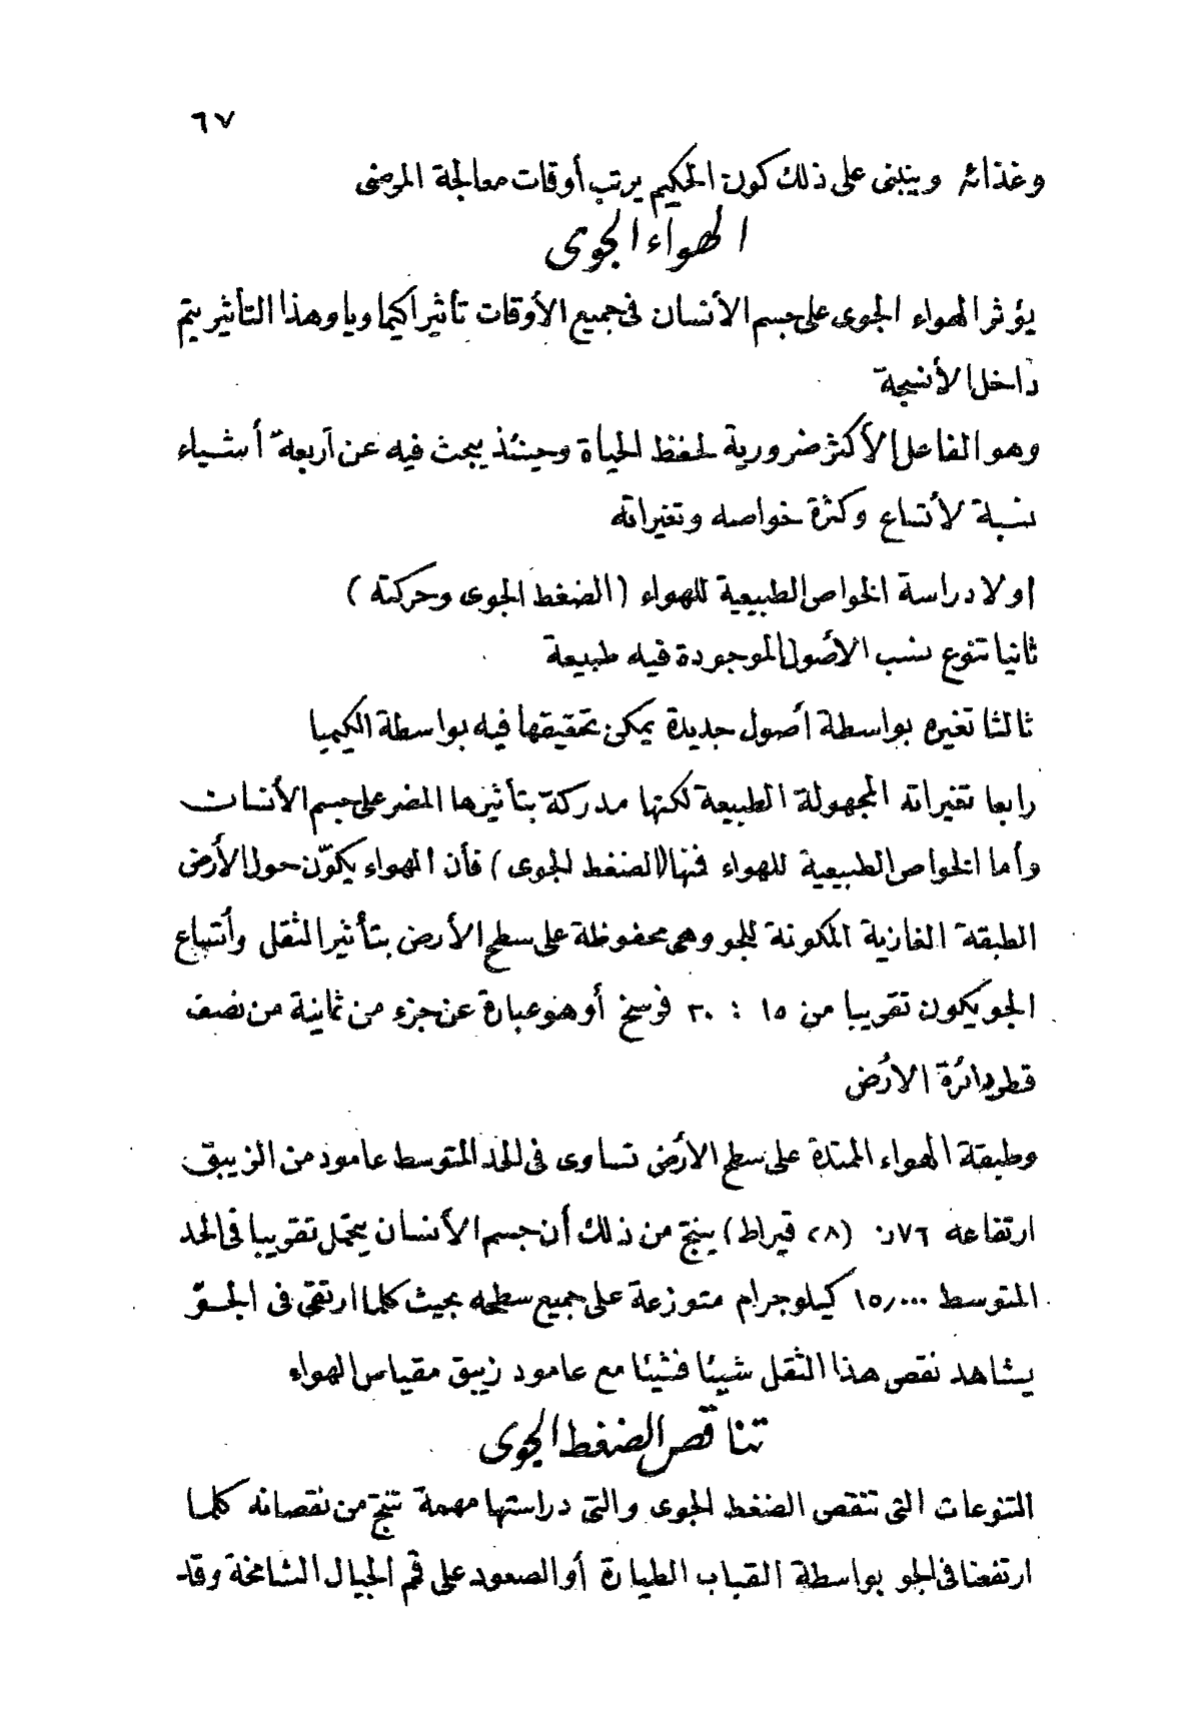 ٦٧
وغذائه وينبنى على ذلك كون الحكيم يرتب أوقات معالجة المرضى
الهواء الجوى
يؤثر الهواء الجوى على جسم الأنسان فى جميع الأوقات تأثيرا كيماويا وهذا التأثير يتم
داخل الأنسجة
وهو الفاعل الأكثر ضرورية لحفظ الحياة وحينئذ يبحث فيه عن أربعة أشياء
نسبة لأتساع وكثرة خواصه وتغيراته
اولا دراسة الخواص الطبيعية للهواء (الضغط الجوى وحركته)
ثانيا تنوع نسب الأصول الموجودة فيه طبيعة
ثالثا تغيره بواسطة أصول جديدة يمكن تحقيقها فيه بواسطة الكيميا
رابعا تغيراته المجهولة الطبيعة لكنها مدركة بتأثيرها المضر على جسم الأنسان
وأما الخواص الطبيعية للهواء فمنها (الضغط الجوى) فأن الهواء يكوّن حول الأرض
الطبقة الغازية المكونة للجو وهى محفوظة على سطح الأرض بتأثير الثقل وأتساع
الجو يكون تقريبا من ١٥ : ٣٠ فرسخ أو هو عبارة عن جزء من ثمانية من نصف
قطر دائرة الارض
وطبقة الهواء الممتدة على سطح الأرض تساوى فى الحد المتوسط عامود من الزيبق
ارتفاعه ٧٦ر٠ (٢٨ قيراط) ينتج من ذلك أن جسم الأنسان يتحمل تقريبا فى الحد
المتوسط ١٥٫٠٠٠ كيلوجرام متوزعة على جميع سطحه بحيث كلما ارتقى فى الجوّ
يشاهد نقص هذا الثقل شيئا فشيئا مع عامود زيبق مقياس الهواء
تناقص الضغط الجوى
التنوعات التى تنقص الضغط الجوى والتى دراستها مهمة تنتج من نقصانه كلما
ارتفعنا فى الجو بواسطة القباب الطيارة أو الصعود على قمم الجبال الشامخة وقد